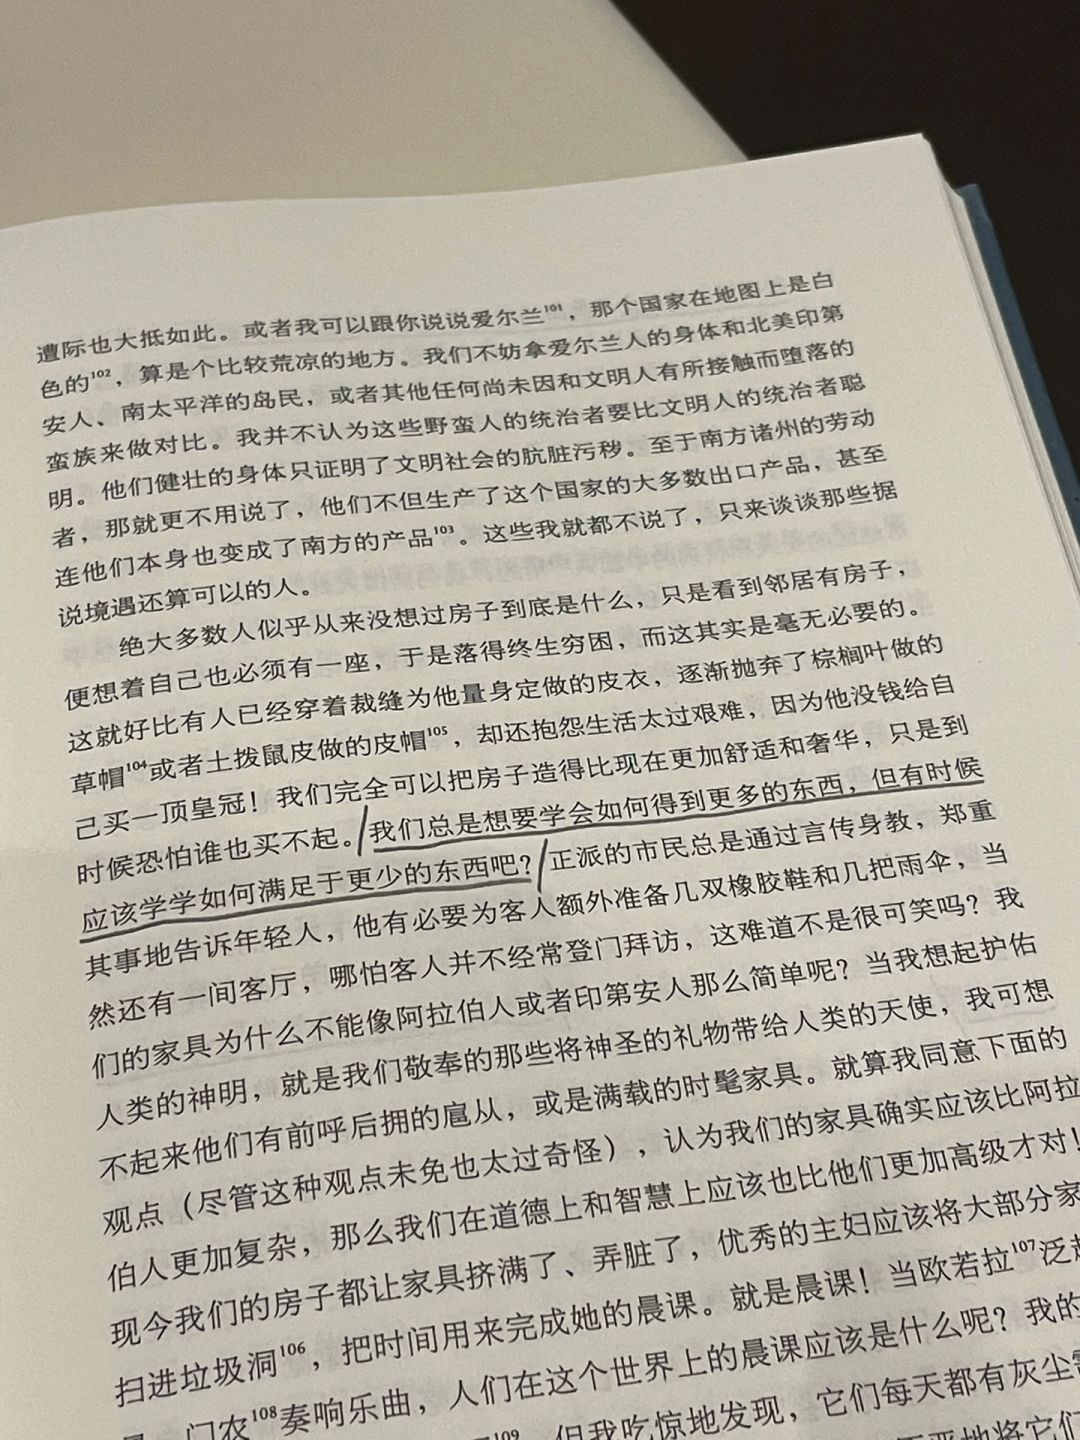 遭际也大抵如此。或者我可以跟你说说爱尔兰¹⁰¹，那个国家在地图上是白
色的¹⁰²，算是个比较荒凉的地方。我们不妨拿爱尔兰人的身体和北美印第
安人、南太平洋的岛民，或者其他任何尚未因和文明人有所接触而堕落的
蛮族来做对比。我并不认为这些野蛮人的统治者要比文明人的统治者聪
明。他们健壮的身体只证明了文明社会的肮脏污秽。至于南方诸州的劳动
者，那就更不用说了，他们不但生产了这个国家的大多数出口产品，甚至
连他们本身也变成了南方的产品¹⁰³。这些我就都不说了，只来谈谈那些据
说境遇还算可以的人。
绝大多数人似乎从来没想过房子到底是什么，只是看到邻居有房子，
便想着自己也必须有一座，于是落得终生穷困，而这其实是毫无必要的。
这就好比有人已经穿着裁缝为他量身定做的皮衣，逐渐抛弃了棕榈叶做的
草帽¹⁰⁴或者土拨鼠皮做的皮帽¹⁰⁵，却还抱怨生活太过艰难，因为他没钱给自
己买一顶皇冠！我们完全可以把房子造得比现在更加舒适和奢华，只是到
时候恐怕谁也买不起。我们总是想要学会如何得到更多的东西，但有时候
应该学学如何满足于更少的东西吧？正派的市民总是通过言传身教，郑重
其事地告诉年轻人，他有必要为客人额外准备几双橡胶鞋和几把雨伞，当
然还有一间客厅，哪怕客人并不经常登门拜访，这难道不是很可笑吗？我
们的家具为什么不能像阿拉伯人或者印第安人那么简单呢？当我想起护佑
人类的神明，就是我们敬奉的那些将神圣的礼物带给人类的天使，我可想
不起来他们有前呼后拥的扈从，或是满载的时髦家具。就算我同意下面的
观点（尽管这种观点未免也太过奇怪），认为我们的家具确实应该比阿拉
伯人更加复杂，那么我们在道德上和智慧上应该也比他们更加高级才对！
现今我们的房子都让家具挤满了、弄脏了，优秀的主妇应该将大部分家
扫进垃圾洞¹⁰⁶，把时间用来完成她的晨课。就是晨课！当欧若拉¹⁰⁷泛起
门农¹⁰⁸奏响乐曲，人们在这个世界上的晨课应该是什么呢？我的
¹⁰⁹，但我吃惊地发现，它们每天都有灰尘需
地将它们